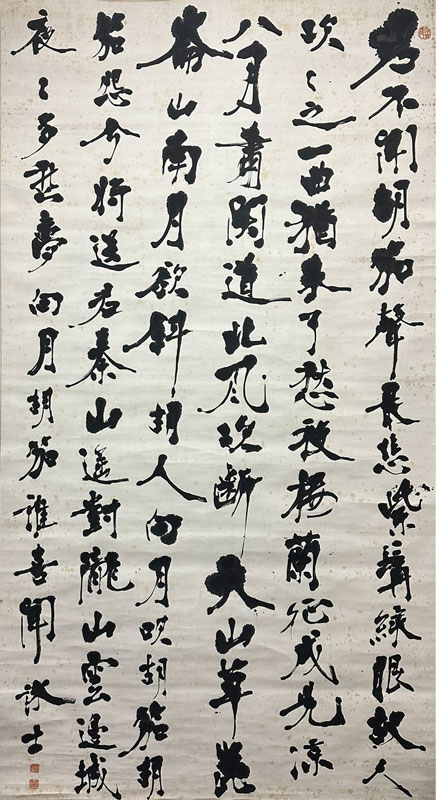 君不聞胡笳聲最悲紫髯綠眼胡人
吹々之一曲猶未了愁殺樓蘭征戍兒涼
八月蕭關道北風吹斷天山草崑
崙山南月欲斜胡人向月吹胡笳胡
笳怨兮將送君秦山遙對隴山雲邊城
夜々多愁夢向月胡笳誰喜聞 詠士